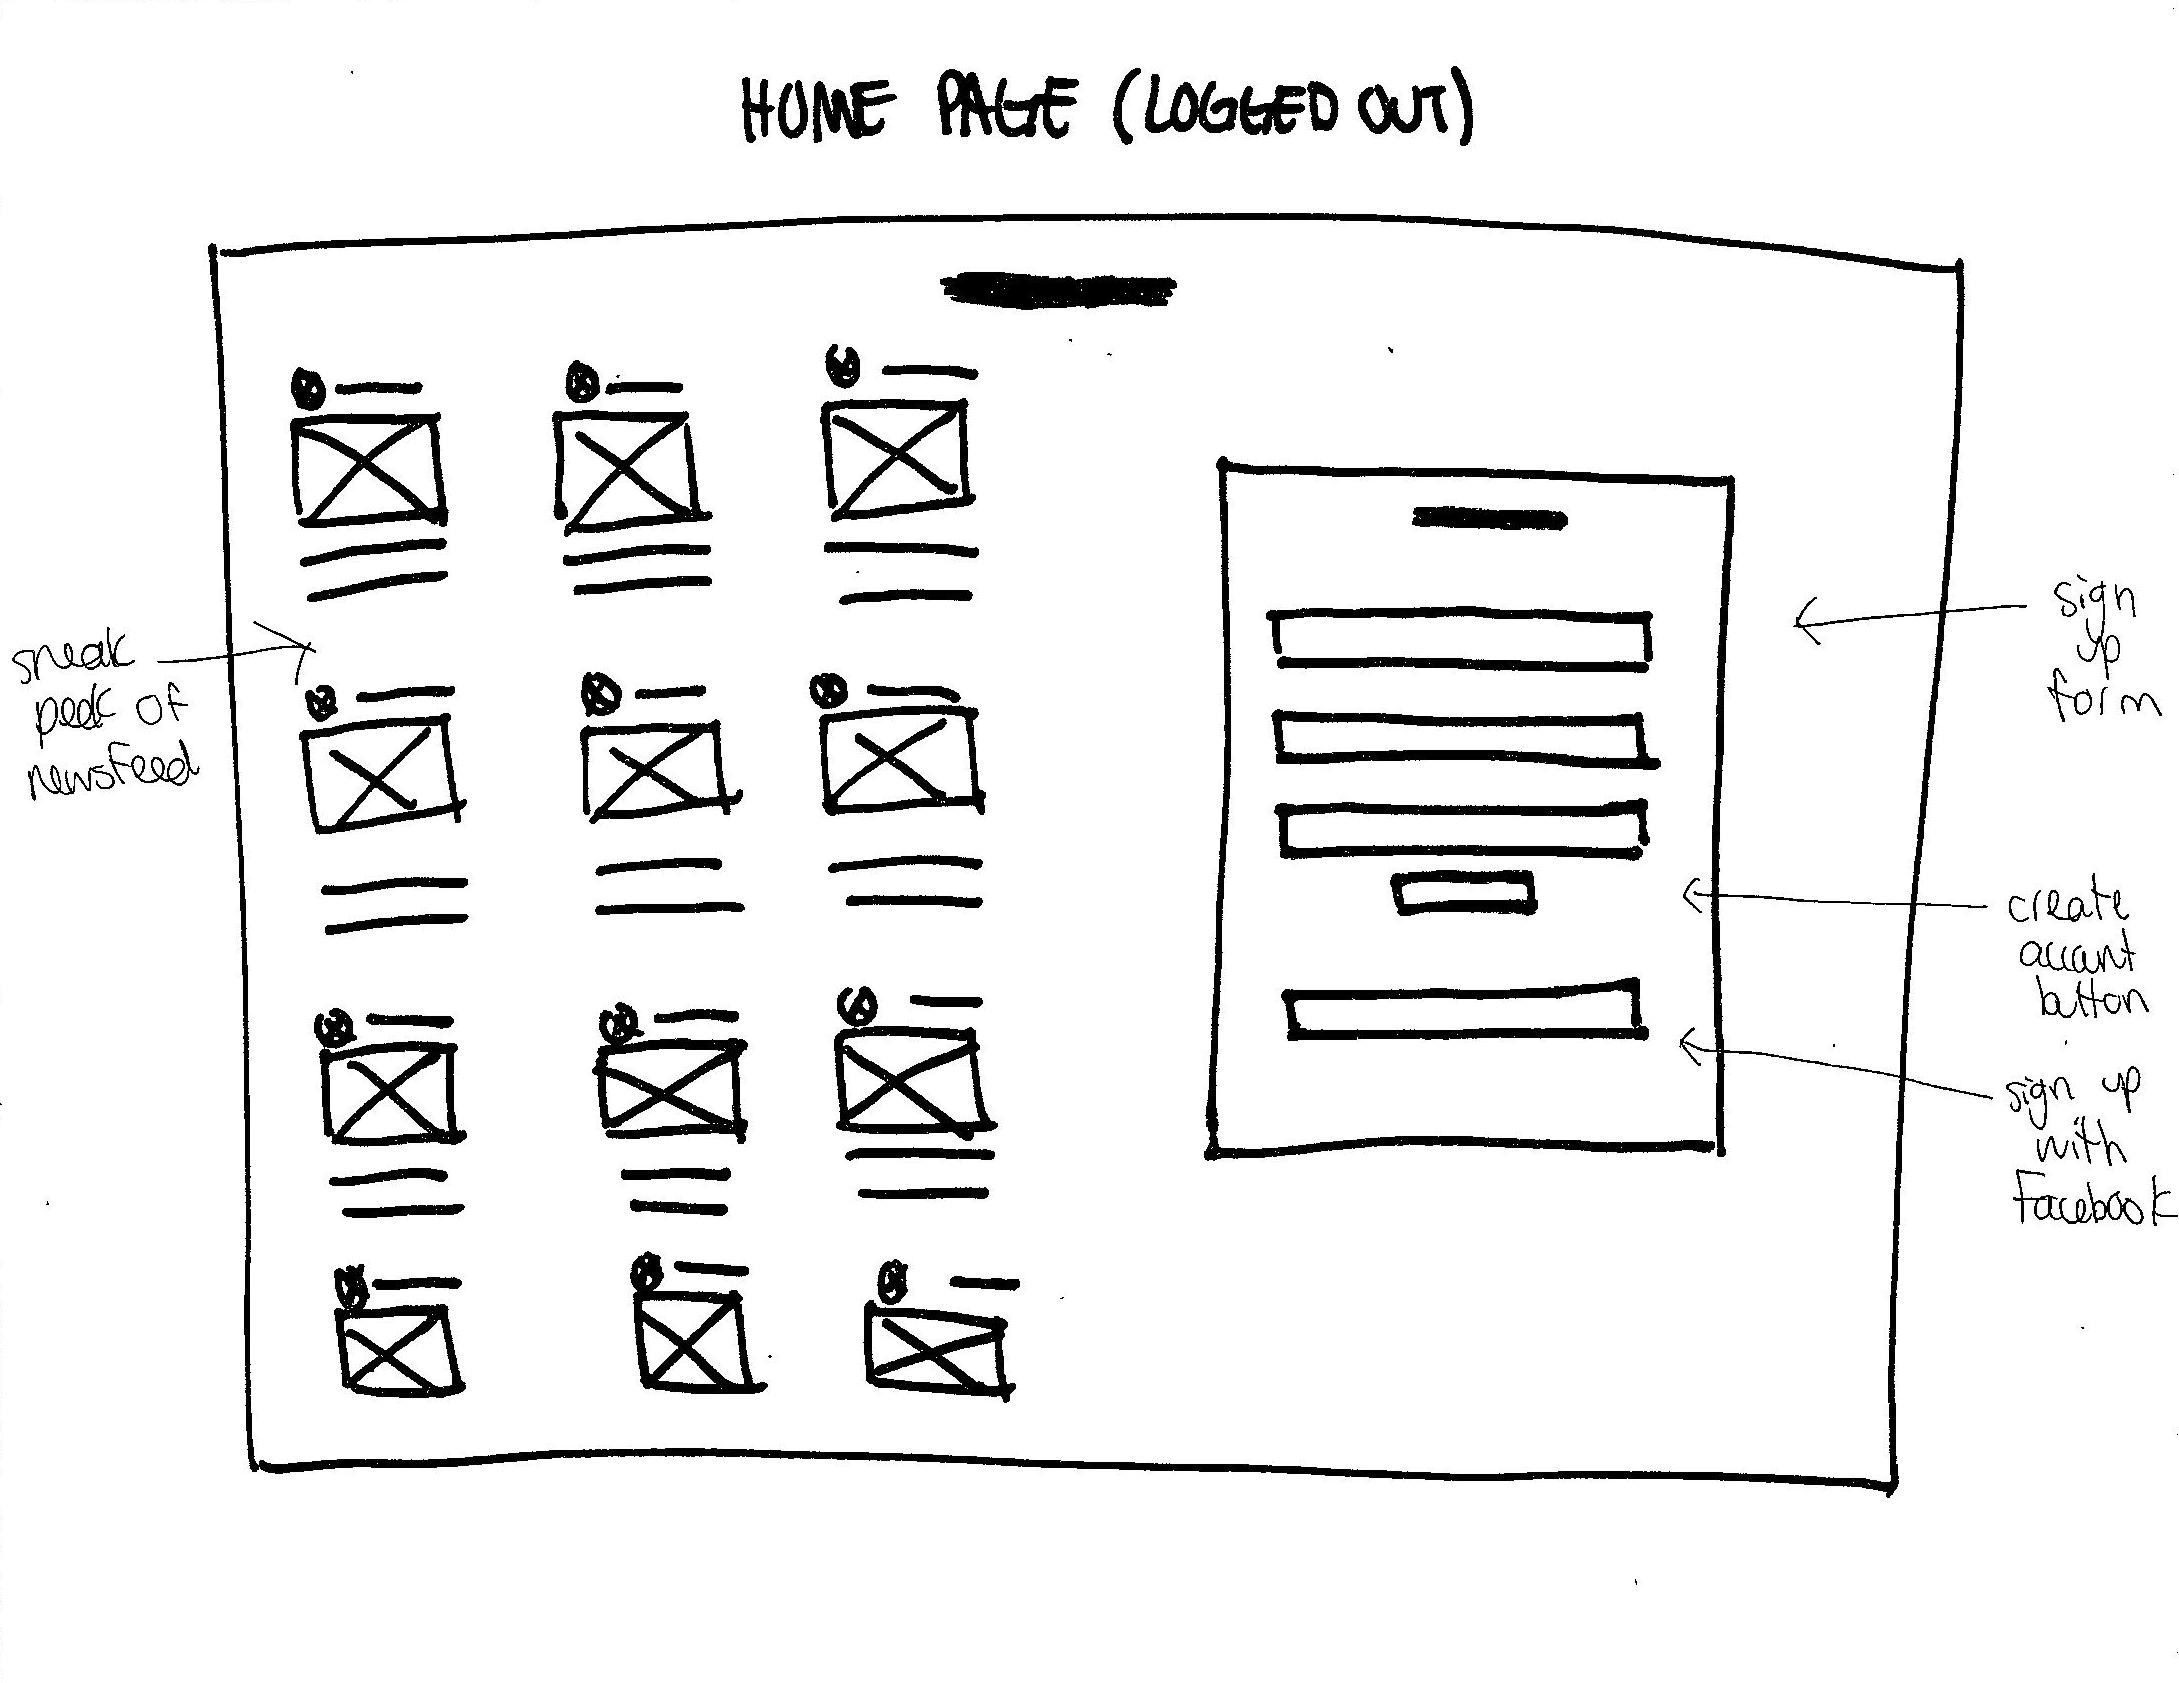 HOME PAGE (LOGGED OUT)
sneak
peek of
newsfeed
sign
up
form
create
account
button
sign up
with
Facebook